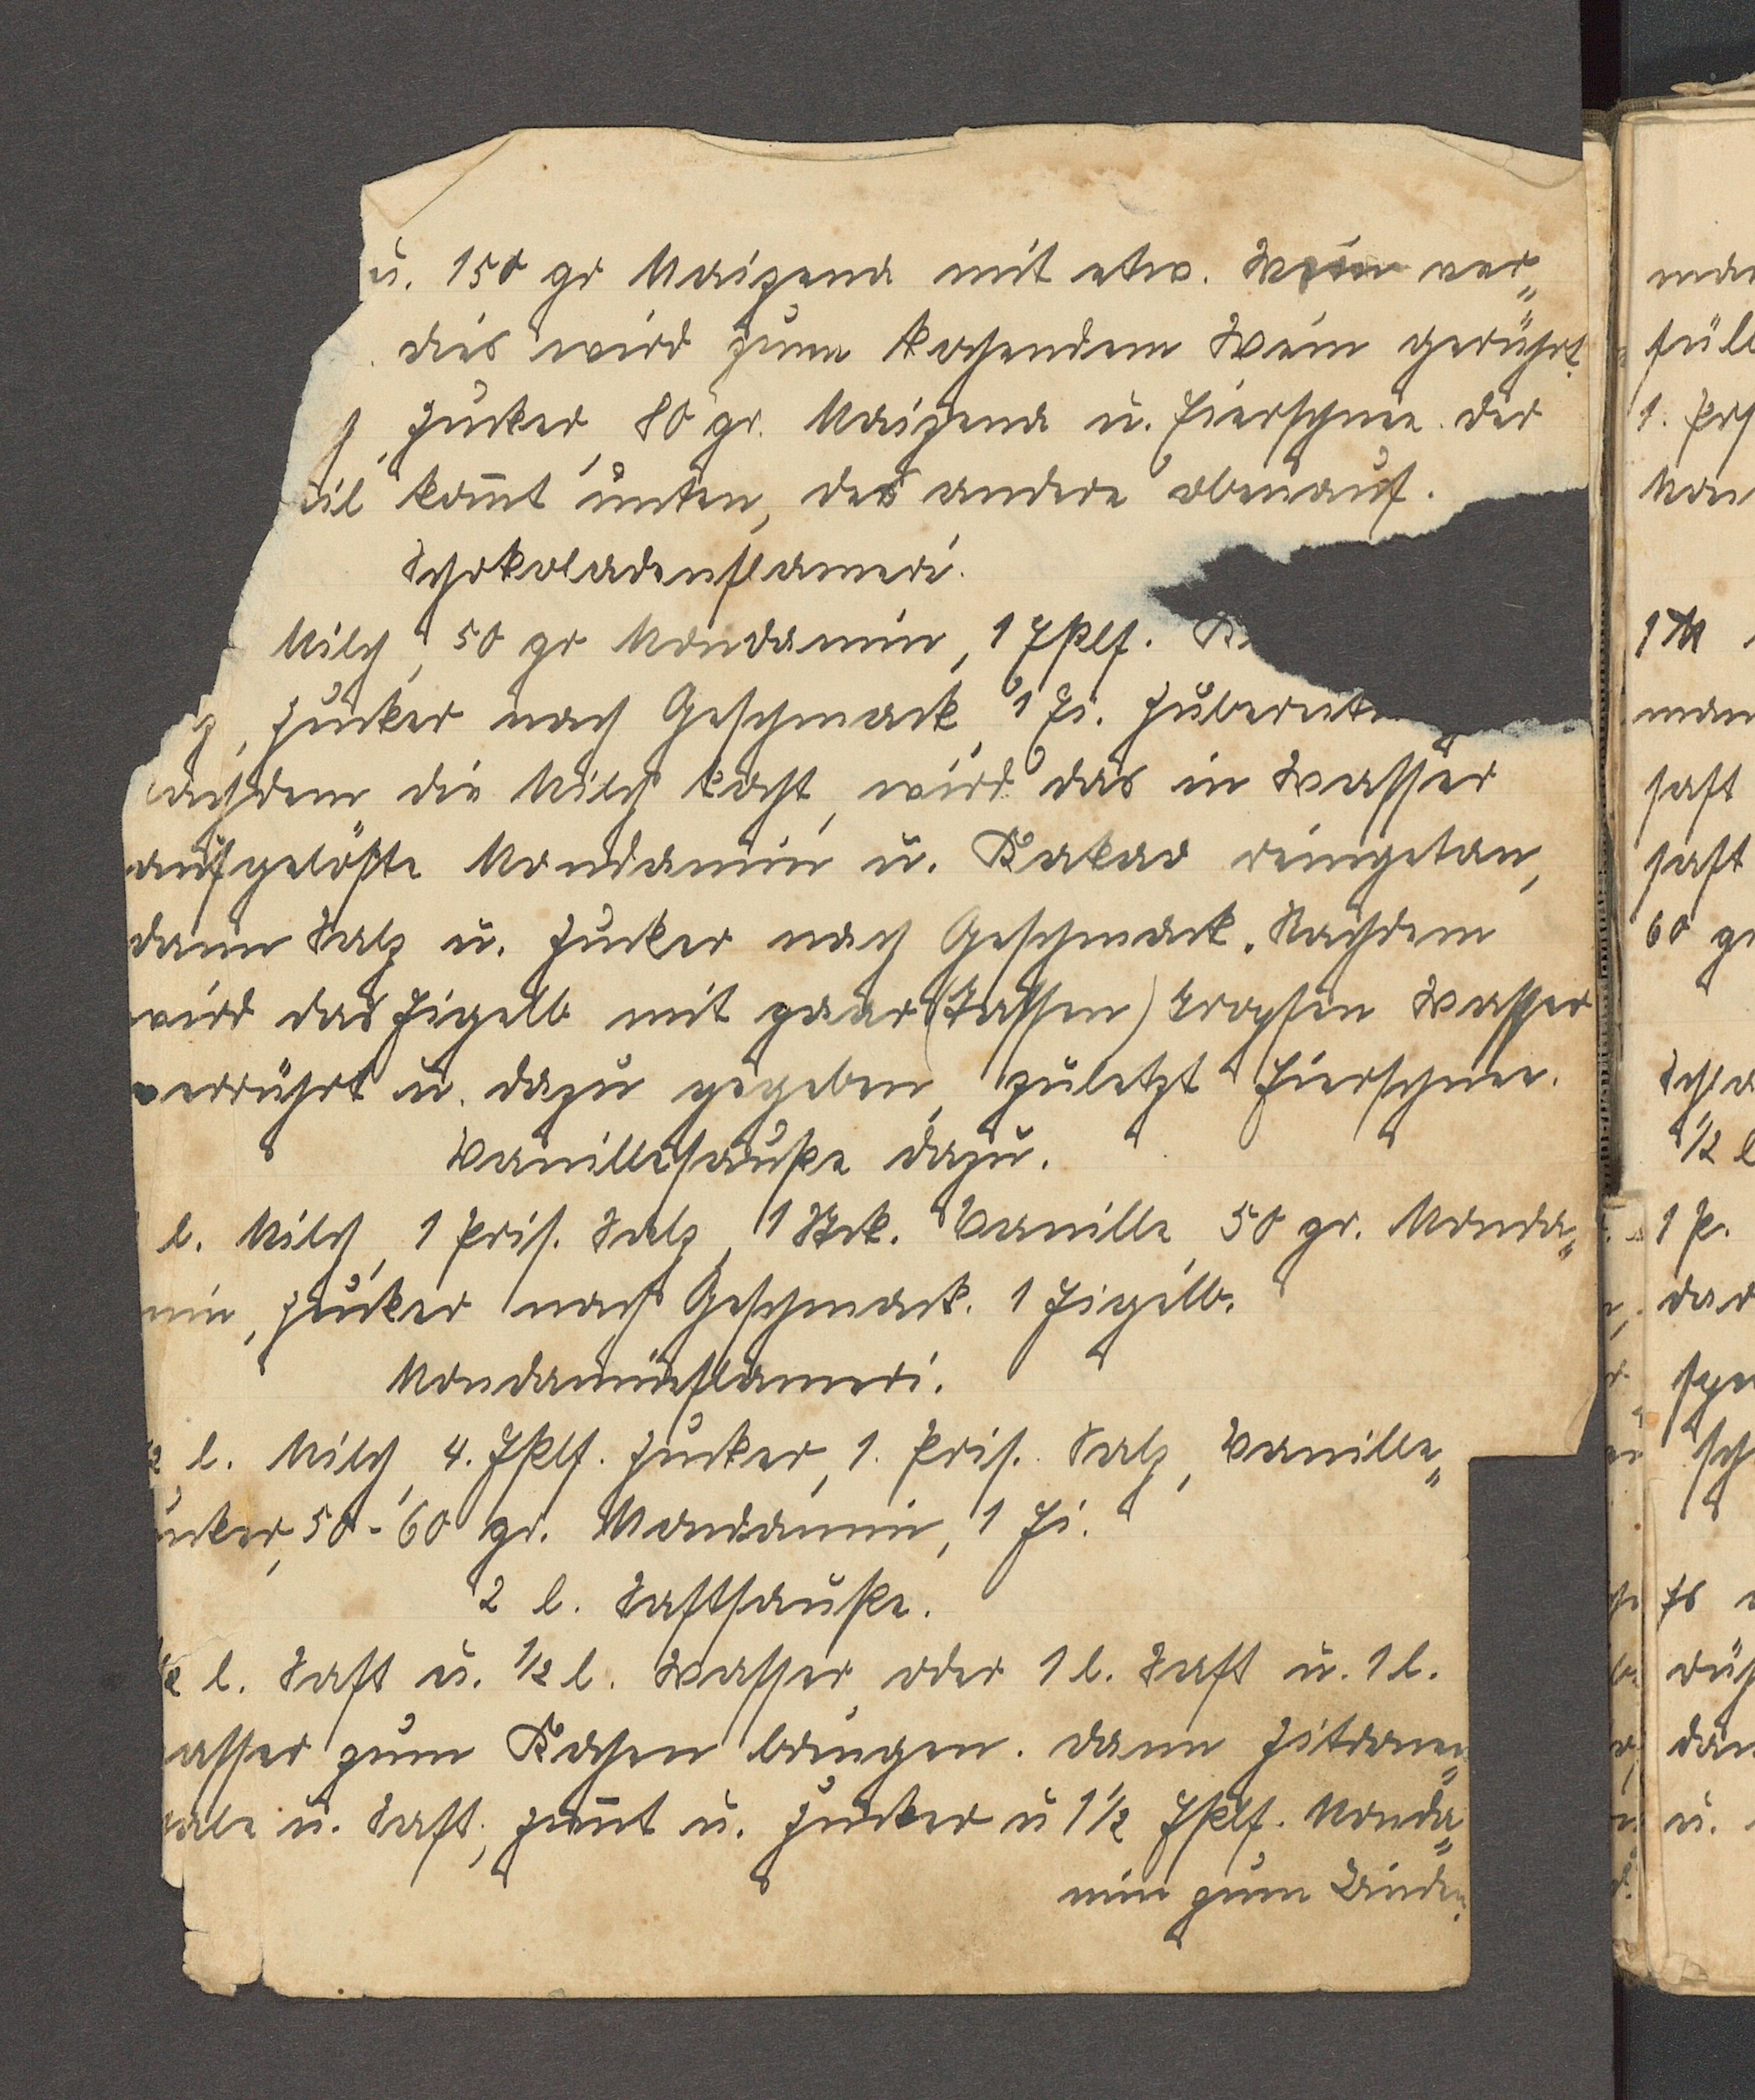 u. 150 gr Maizena mit etw. Wein ver„
dies wird zum kochendem Wein gerührt.
Zucker, 80 gr. Maizena u. Eierschnee. der
eil kom̅t unten, das andere obenauf.
Schokoladenflameri.
Milch, 50 gr Mondamin, 1 Eßlf. K
z, Zucker nach Geschmack, 1 Ei. Zubereit
achdem die Milch kocht, wird das in Wasser
aufgelößte Mondamin u. Kakao reingetan,
dann Salz u. Zucker nach Geschmack. Nachdem
wird das Eigelb mit paar (Tassen) Tropfen Wasser
verrührt u. dazu gegeben, zuletzt Eierschnee.
Vanillesauße dazu.
l. Milch, 1 Pris. Salz, 1 Stck. Vanille, 50 gr. Monda„
min, Zucker nach Geschmack. 1 Eigelb.
Mondaminflameri.
½ l. Milch, 4. Eßlf. Zucker, 1. Pris. Salz, Vanille„
ucker, 50-60 gr. Mondamin, 1 Ei.
2 l. Saftsauße.
½ l. Saft u. ½ l. Wasser, oder 1 l. Saft u. 1 l.
asser zum Kochen bringen. dann Zitronen„
ale u. Saft, Zim̅t u. Zucker u 1½ Eßlf. Monda„
min zum Binden.